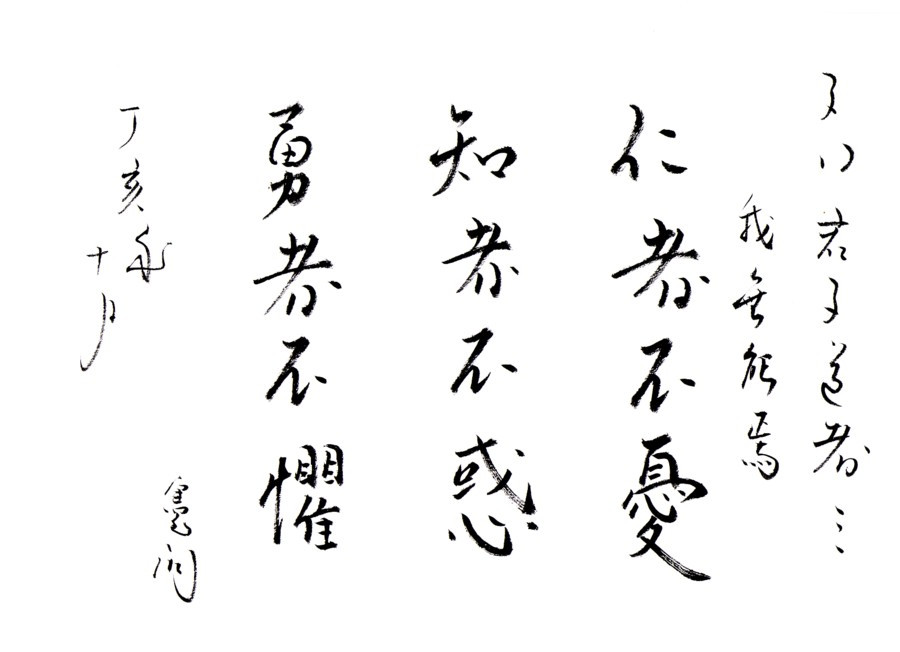 子曰君子道者三
我無能焉
仁者不憂
知者不惑
勇者不懼
丁亥秋
十月